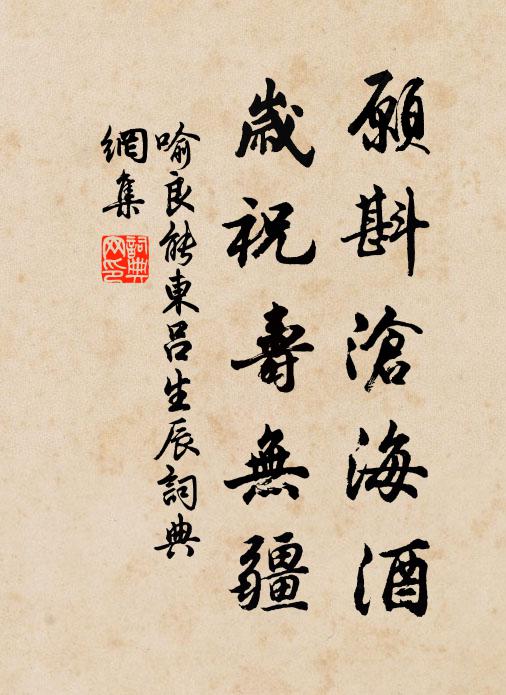 願斟滄海酒
歲祝壽無疆
喻良能東呂生辰詞典
網集
詞典
网印